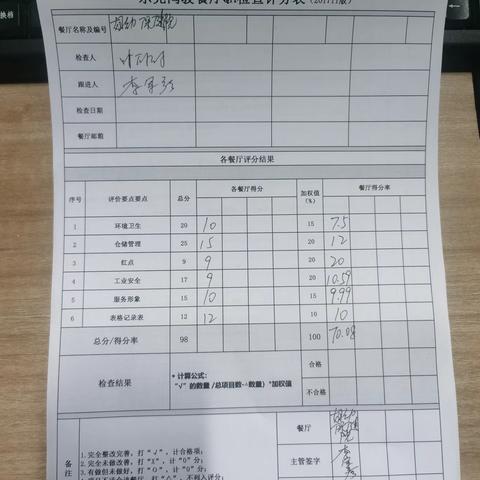 换档
评分表（201711版）
餐厅名称及编号
检查人
跟进人
检查日期
餐厅邮箱
各餐厅评分结果
序号 评价要点要点 总分 各餐厅得分 加权值(%) 餐厅得分率
1 环境卫生 20 10 15 7.5
2 仓储管理 25 15 20 12
3 红点 9 9 20 20
4 工业安全 17 9 20 10.59
5 服务形象 15 10 15 9.99
6 表格记录表 12 12 10 10
总分/得分率 98 100 70.08
检查结果
* 计算公式:
“√”的数量 /总项目数-△数量）*加权值
合格
不合格
餐厅
主管签字
备注
1.完全整改完善，打“√”，计合格项;
2.完全未做改善，打“X”，计“0”分;
3.有做但未做好，打“O”，计“0”分;